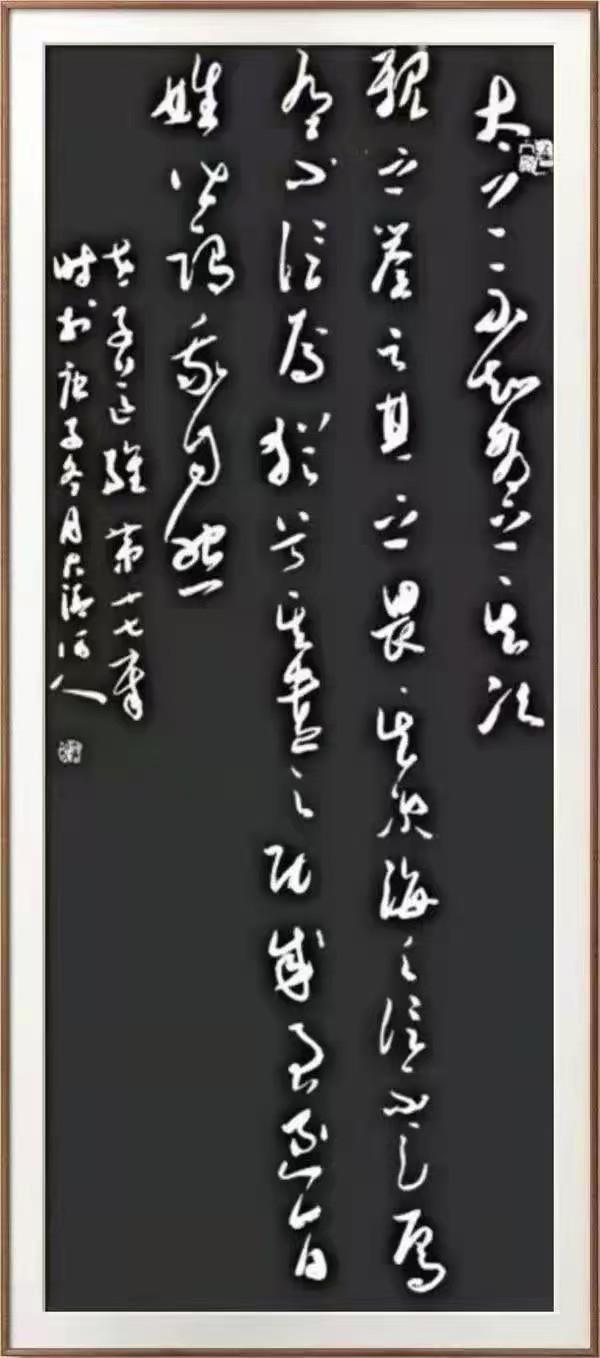 太上下不知有之其次
親而譽之其次畏之其次侮之信不足焉
有不信焉猶兮其貴言功成事遂百
姓皆謂我自然
老子道經第十七章
時於庚子冬月大清河人